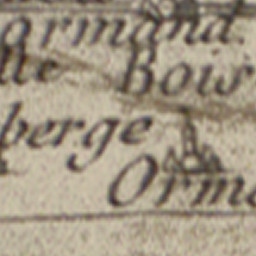 ormand.
lle Bois
berge
Orme